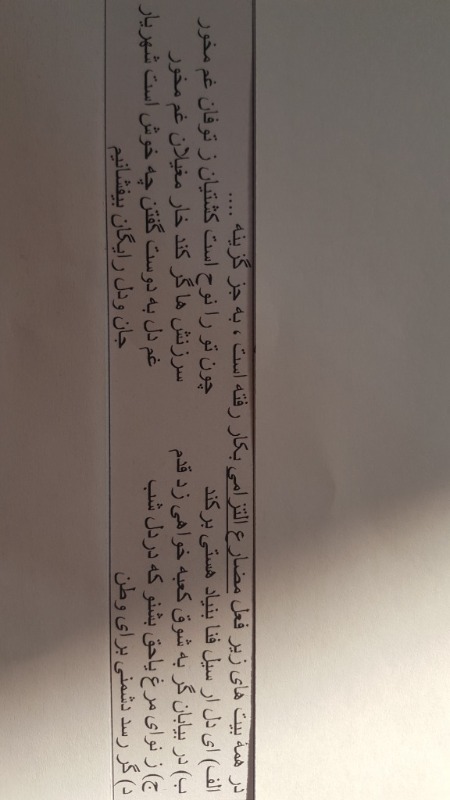 در همهٔ بیت های زیر فعل مضارع التزامی بکار رفته است ، به جز گزینه ....
الف) ای دل ار سیل فنا بنیاد هستی برکند چون تو را نوح است کشتیبان ز توفان غم مخور
ب) در بیابان گر به شوق کعبه خواهی زد قدم سرزنش ها گر کند خار مغیلان غم مخور
ج) ز نوای مرغ یاحق بشنو که در دل شب غم دل به دوست گفتن چه خوش است شهریار
د) گر رسد دشمنی برای وطن جان و دل رایگان بیفشانیم